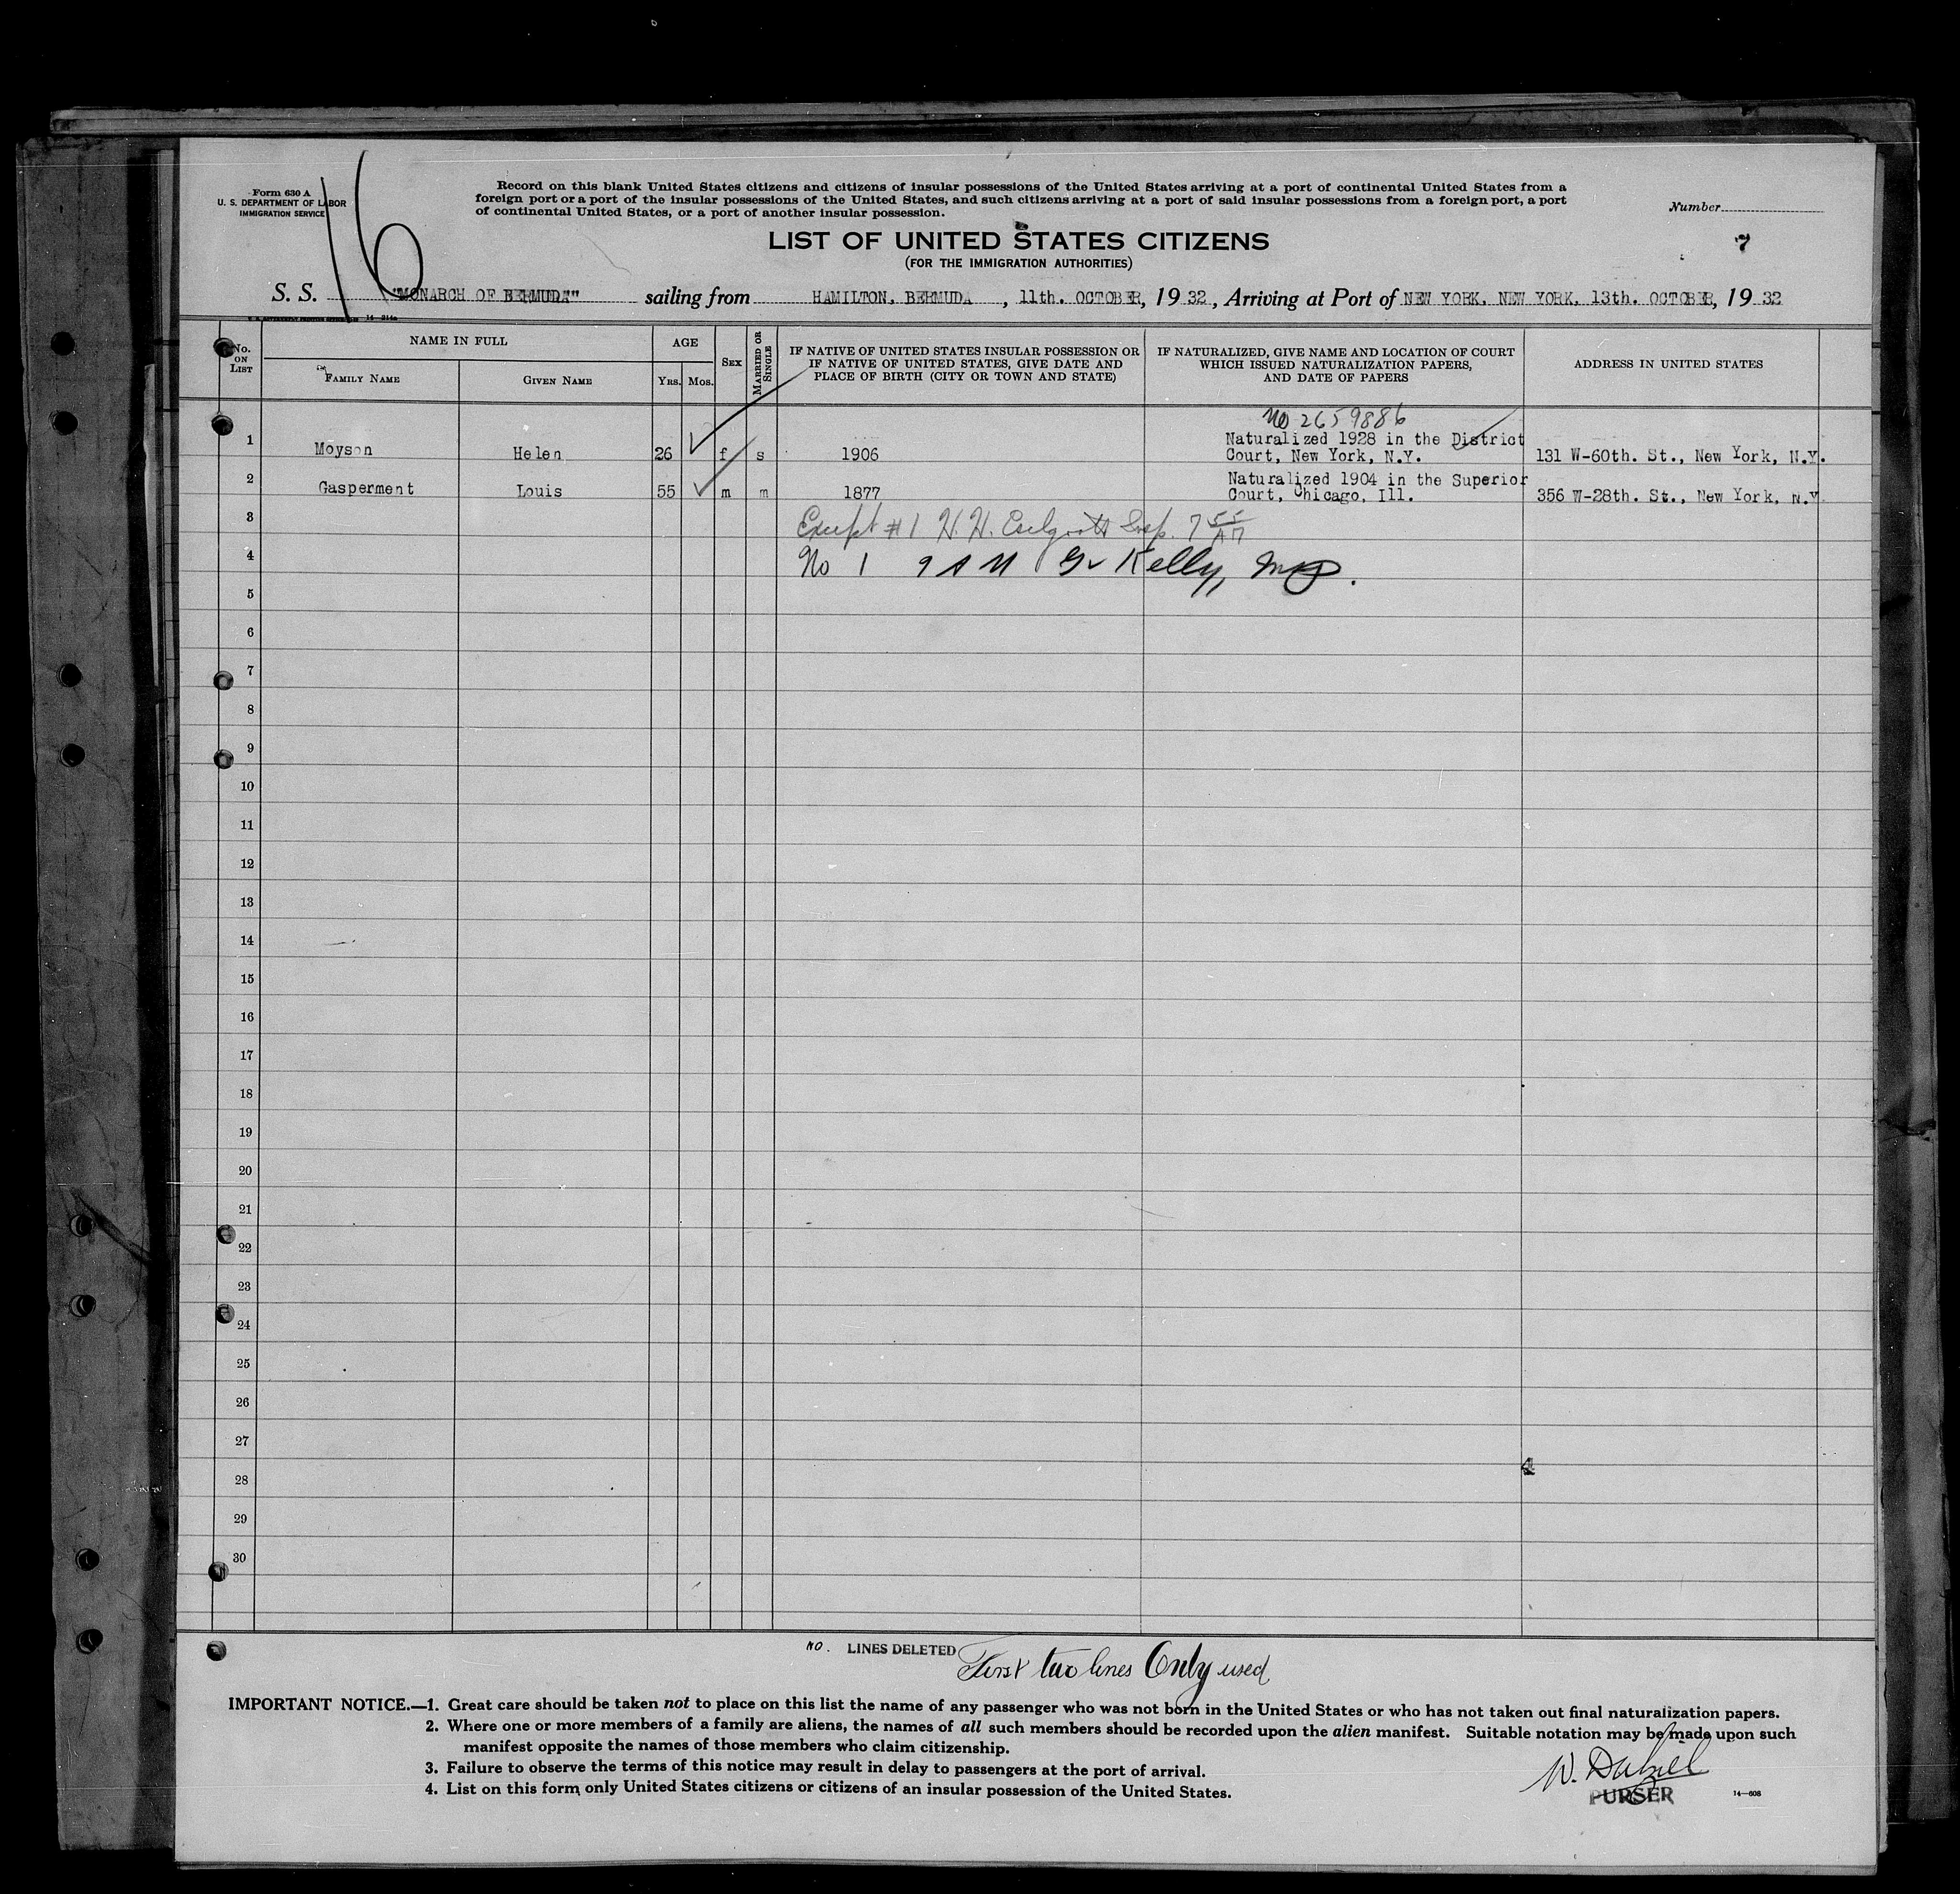 Form 630 A
U. S. DEPARTMENT OF LABOR
IMMIGRATION SERVICE
16
Record on this blank United States citizens and citizens of insular possessions of the United States arriving at a port of continental United States from a
foreign port or a port of the insular possessions of the United States, and such citizens arriving at a port of said insular possessions from a foreign port, a port
of continental United States, or a port of another insular possession.
Number
LIST OF UNITED STATES CITIZENS
7
(FOR THE IMMIGRATION AUTHORITIES)
S. S. "MONARCH OF BERMUDA" sailing from HAMILTON, BERMUDA, 11th. OCTOBER, 1932, Arriving at Port of NEW YORK, NEW YORK, 13th. OCTOBER, 1932
No. ON LIST
NAME IN FULL
FAMILY NAME
GIVEN NAME
AGE
YRS. MOS.
SEX
MARRIED OR SINGLE
IF NATIVE OF UNITED STATES INSULAR POSSESSION OR
IF NATIVE OF UNITED STATES, GIVE DATE AND
PLACE OF BIRTH (CITY OR TOWN AND STATE)
IF NATURALIZED, GIVE NAME AND LOCATION OF COURT
WHICH ISSUED NATURALIZATION PAPERS,
AND DATE OF PAPERS
ADDRESS IN UNITED STATES
No 2659886
1 Moyson Helen 26 f s 1906 Naturalized 1928 in the District
Court, New York, N.Y. 131 W-60th. St., New York, N.Y.
2 Gasperment Louis 55 m m 1877 Naturalized 1904 in the Superior
Court, Chicago, Ill. 356 W-28th. St., New York, N.Y
3 Except #1 H. H. Insp. 7 55 AM
4 No 1 9 AM Kelly, Insp.
5
6
7
8
9
10
11
12
13
14
15
16
17
18
19
20
21
22
23
24
25
26
27
28
29
30
4
NO. LINES DELETED First two lines Only used
IMPORTANT NOTICE.—1. Great care should be taken not to place on this list the name of any passenger who was not born in the United States or who has not taken out final naturalization papers.
2. Where one or more members of a family are aliens, the names of all such members should be recorded upon the alien manifest. Suitable notation may be made upon such
manifest opposite the names of those members who claim citizenship.
3. Failure to observe the terms of this notice may result in delay to passengers at the port of arrival.
4. List on this form only United States citizens or citizens of an insular possession of the United States.
W.
PURSER
14—608